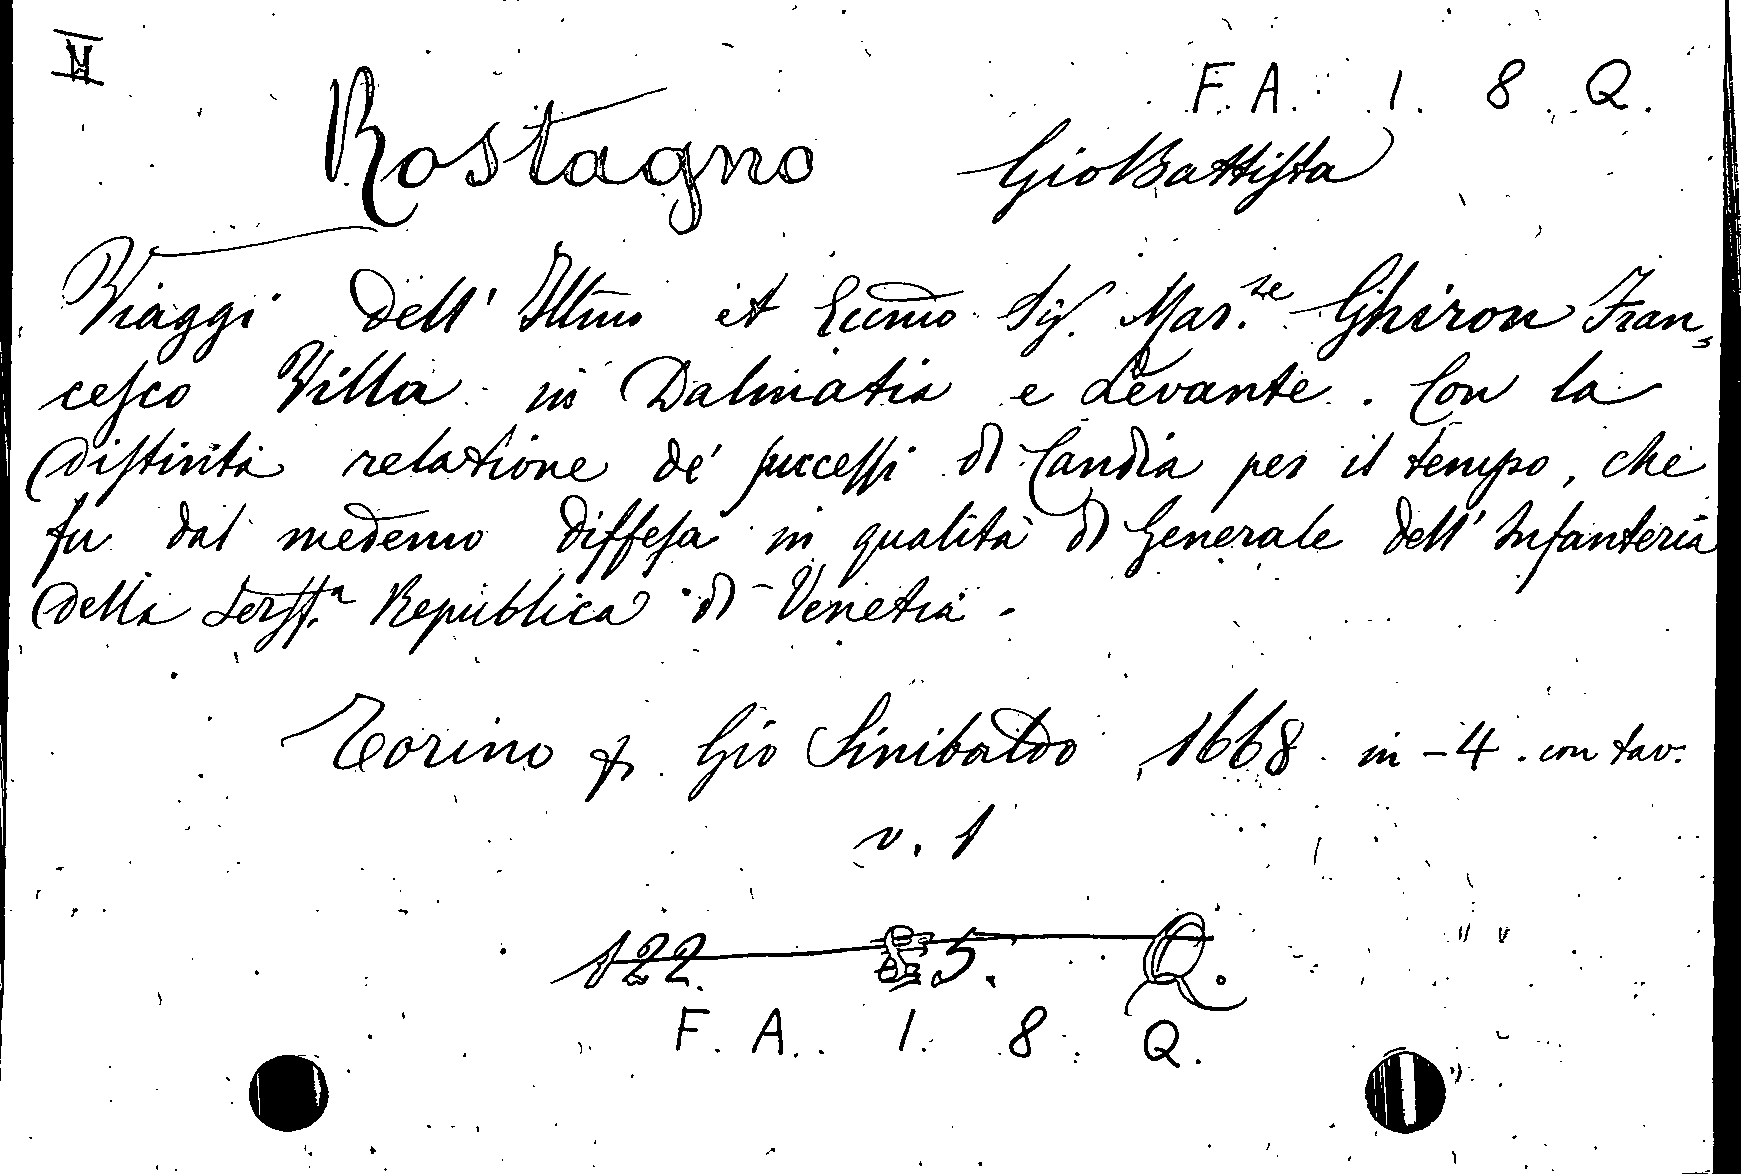 F. A. 1. 8. Q.
Rostagno Gio Battista
Viaggi dell' Illmo et Eccmo Sig. Mar.se Ghiron Fran=
cesco Villa in Dalmatia e Levante. Con la
distinta relatione de' successi di Candia per il tempo, che
fu dal medemo diffesa in qualità di Generale dell' Infanteria
della Serss.a Republica di Venetia.
Torino Gio Sinibaldo 1668 in-4. con tav.
v. 1
122. 5. Q.
F. A. 1. 8. Q.